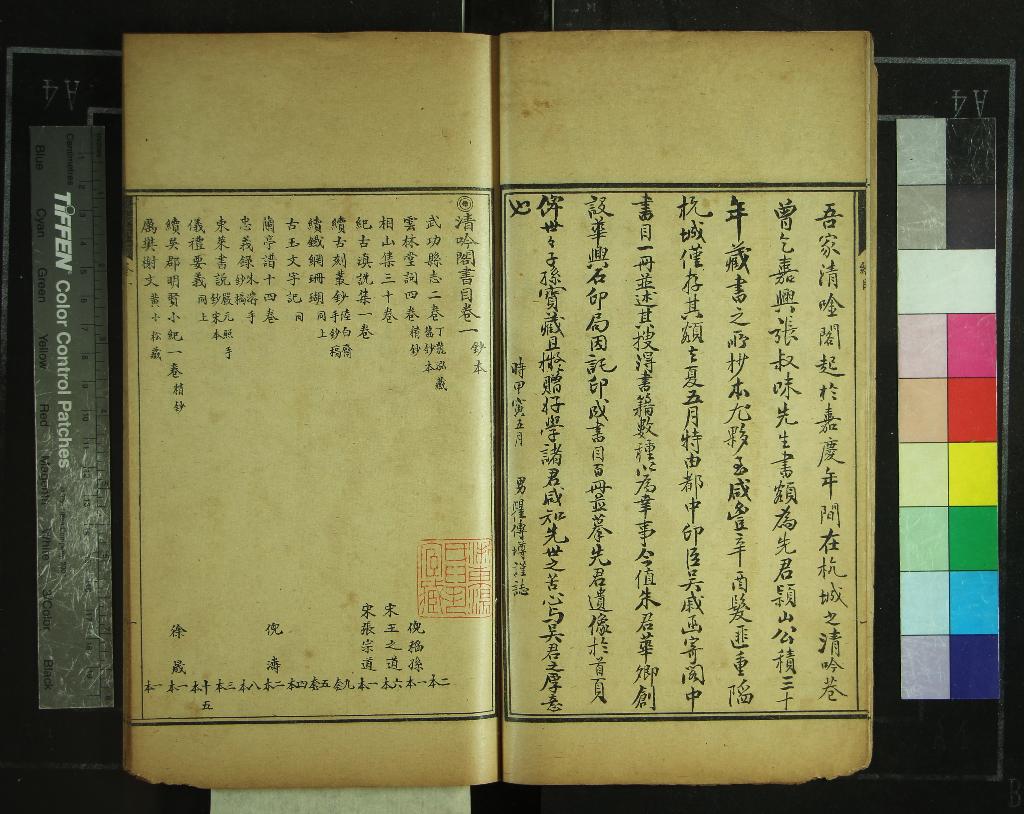 吾家清唫閣起於嘉慶年間在杭城之清吟巷
曾乞嘉興張叔味先生書額為先君穎山公積三十
年藏書之所抄本尤夥至咸豐辛酉髮匪重陷
杭城僅存其額去夏五月特由都中印臣吳戚函寄閣中
書目一冊並述其搜得書籍數種以為幸事今值朱君華卿創
設華興石印局因託印成書目百冊並摹先君遺像於首頁
俾世々子孫寶藏且檢贈好學諸君咸知先世之苦心与吴君之厚意
也
時甲寅五月 男 傳 謹誌
清吟閣書目卷一 鈔本
武功縣志二卷 丁龍泓藏舊鈔本 二本
雲林堂詞四卷 精鈔 倪稻孫 一本
相山集三十卷 宋王之道 六本
紀古滇說集一卷 宋張宗道 一本
續古刻叢鈔 陸白齋手鈔稿 九套
續鐵網珊瑚 同上 五套
古玉文字記 同 四本
蘭亭譜十四卷 倪濤 二本
忠義錄 朱 手鈔稿 八本
東萊書說 嚴元照手鈔宋本 三本
儀禮要義 同上 十五本
續吳郡明賢小紀一卷 精鈔 徐晟 一本
厲樊榭文 黃小松藏 一本
TIFFEN Color Control Patches
Centimetres
Blue
Cyan
Green
Yellow
Red
Magenta
White
3/Color
Black
A4
A4
B